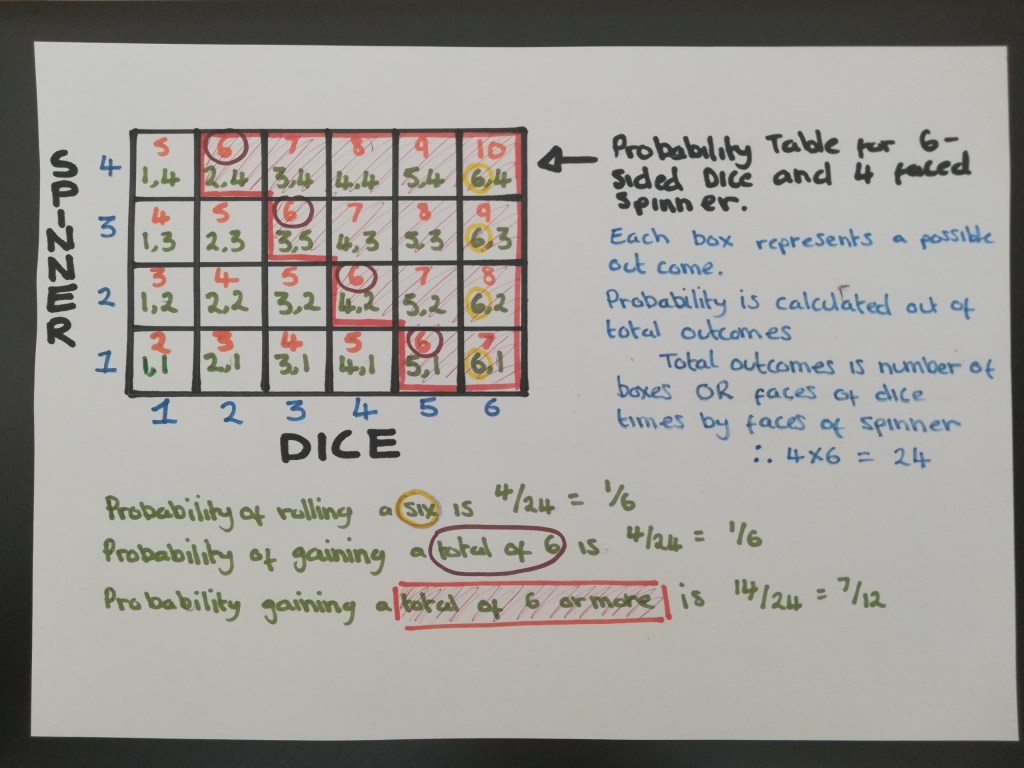 SPINNER
4 5 6 7 8 9 10
1,4 2,4 3,4 4,4 5,4 6,4
3 4 5 6 7 8 9
1,3 2,3 3,5 4,3 5,3 6,3
2 3 4 5 6 7 8
1,2 2,2 3,2 4,2 5,2 6,2
1 2 3 4 5 6 7
1,1 2,1 3,1 4,1 5,1 6,1
1 2 3 4 5 6
DICE
Probability Table for 6-
sided Dice and 4 faced
Spinner.
Each box represents a possible
out come.
Probability is calculated out of
total outcomes
Total outcomes is number of
boxes OR faces of dice
times by faces of spinner
∴ 4×6 = 24
Probability of rolling a six is 4/24 = 1/6
Probability of gaining a total of 6 is 4/24 = 1/6
Probability gaining a total of 6 or more is 14/24 = 7/12